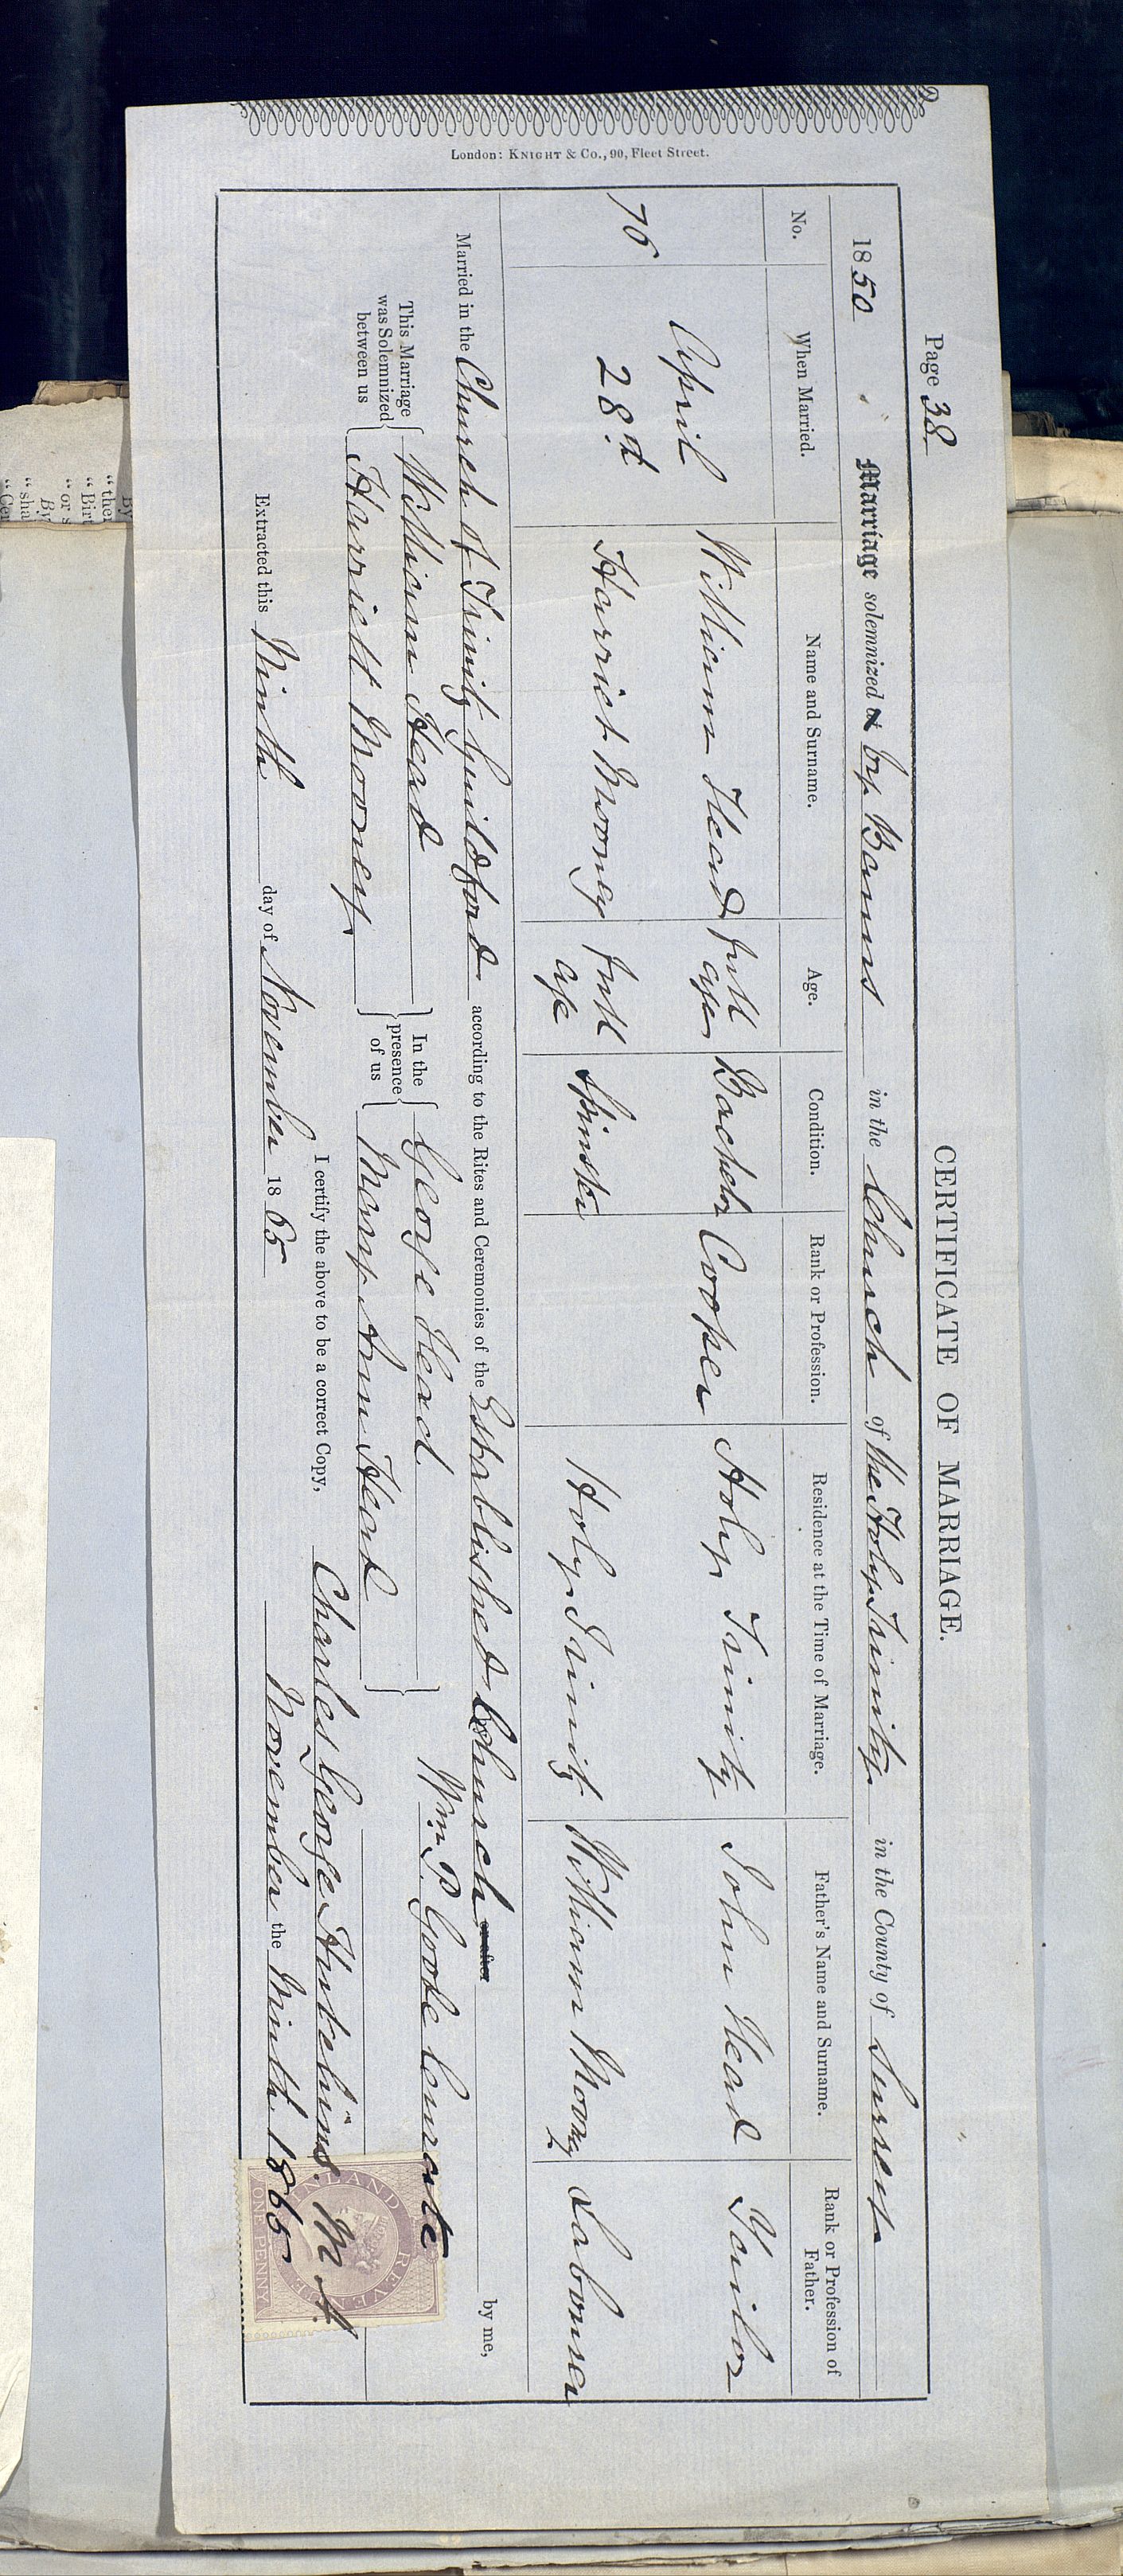 Page 38
CERTIFICATE OF MARRIAGE.
1850 Marriage solemnized by Banns in the Church of the Holy Trinity in the County of Surrey
No. When Married. Name and Surname. Age. Condition. Rank or Profession. Residence at the Time of Marriage. Father's Name and Surname. Rank or Profession of Father.
76 April 28th William Head full age Bachelor Cooper Holy Trinity John Head
Harriet Mooney full age Spinster Holy Trinity William Moony Labourer
Married in the Church of Trinity Guildford according to the Rites and Ceremonies of the Established Church or after by me,
This Marriage was Solemnized between us William Head In the presence of us George Head Wm. P. Goode Curate
Harriett Mooney Mary Ann Head
I certify the above to be a correct Copy, Charles George Hutchins. M A.
Extracted this Ninth day of November 1865 November the Ninth 1865
INLAND REVENUE
ONE PENNY
London: KNIGHT & Co., 90, Fleet Street.
By
"ther
"Birt
"or s
By
"sha
"Cer